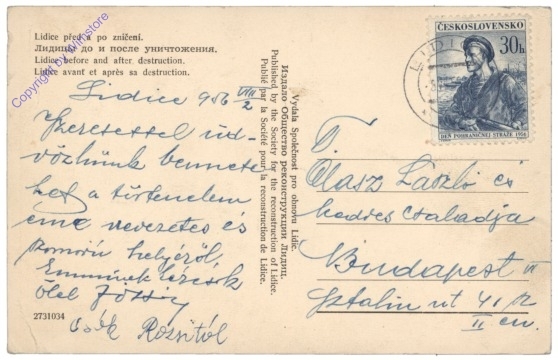 Lidice před a po zničení.
Лидице до и после уничтожения.
Lidice before and after destruction.
Lidice avant et après sa destruction.
Copyright by Wimstore
ČESKOSLOVENSKO
30h
DEN POHRANIČNEJ STRÁŽE 1956
LIDI
Lidice 956 VIII/2
Szeretettel üd-
vözlünk bennete-
ket a történelem
eme nevezetes és
komorú helyéről,
ölel Józsi
Csók Rozsitól
2731034
Vydala Společnost pro obnovu Lidic.
Издало Общество реконструкции Лидиц.
Published by the Society for the reconstruction of Lidice.
Publié par la Société pour la reconstruction de Lidice.
T.
Olasz László és
kedves családja
Budapest
Sztalin út 41
II em.